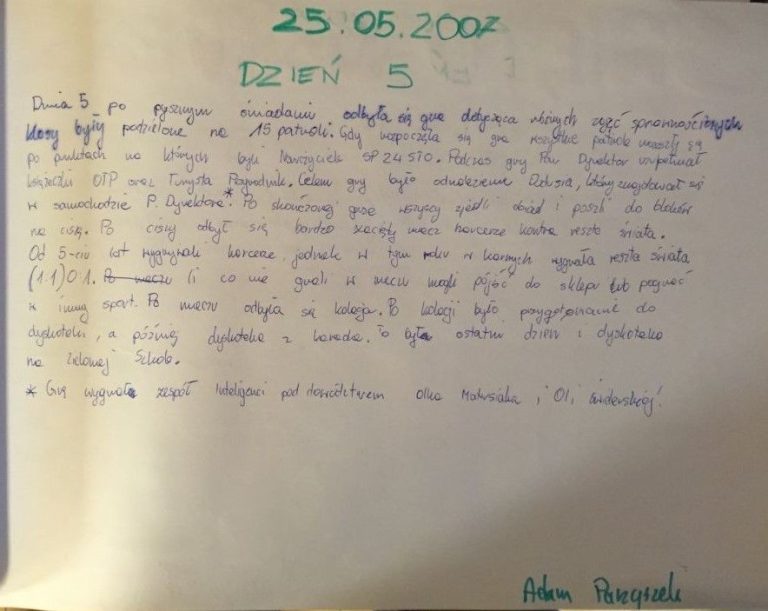 25.05.2007
DZIEŃ 5
Dnia 5 po pysznym śniadaniu odbyła się gra dotycząca różnych zajęć sprawnościowych
klasy były podzielone na 15 patroli. Gdy rozpoczęła się gra wszystkie patrole
po punktach na których byli SP 24 STO. Podczas gry Pan Dyrektor
książeczki OTP oraz Turysta Przyrodnik. Celem gry było odnalezienie który znajdował się
w samochodzie P. Dyrektora.* Po skończonej grze wszyscy zjedli obiad i poszli do bloków
na ciszę. Po ciszy odbył się bardzo zacięty mecz harcerze kontra reszta świata.
Od 5-ciu lat wygrywali harcerze, jednak w tym roku w karnych wygrała reszta świata
(1:1) 0:1. Po meczu (i co nie grali w meczu mogli pójść do sklepu lub pograć
w inny sport. Po meczu odbyła się kolacja. Po kolacji było przygotowanie do
dyskoteki, a później dyskoteka z karaoke. To był ostatni dzień i dyskoteka
na Zielonej Szkole.
* Grę wygrała zespół Inteligenci pod dowództwem Olka Matusiaka i Oli Świderskiej!
Adam